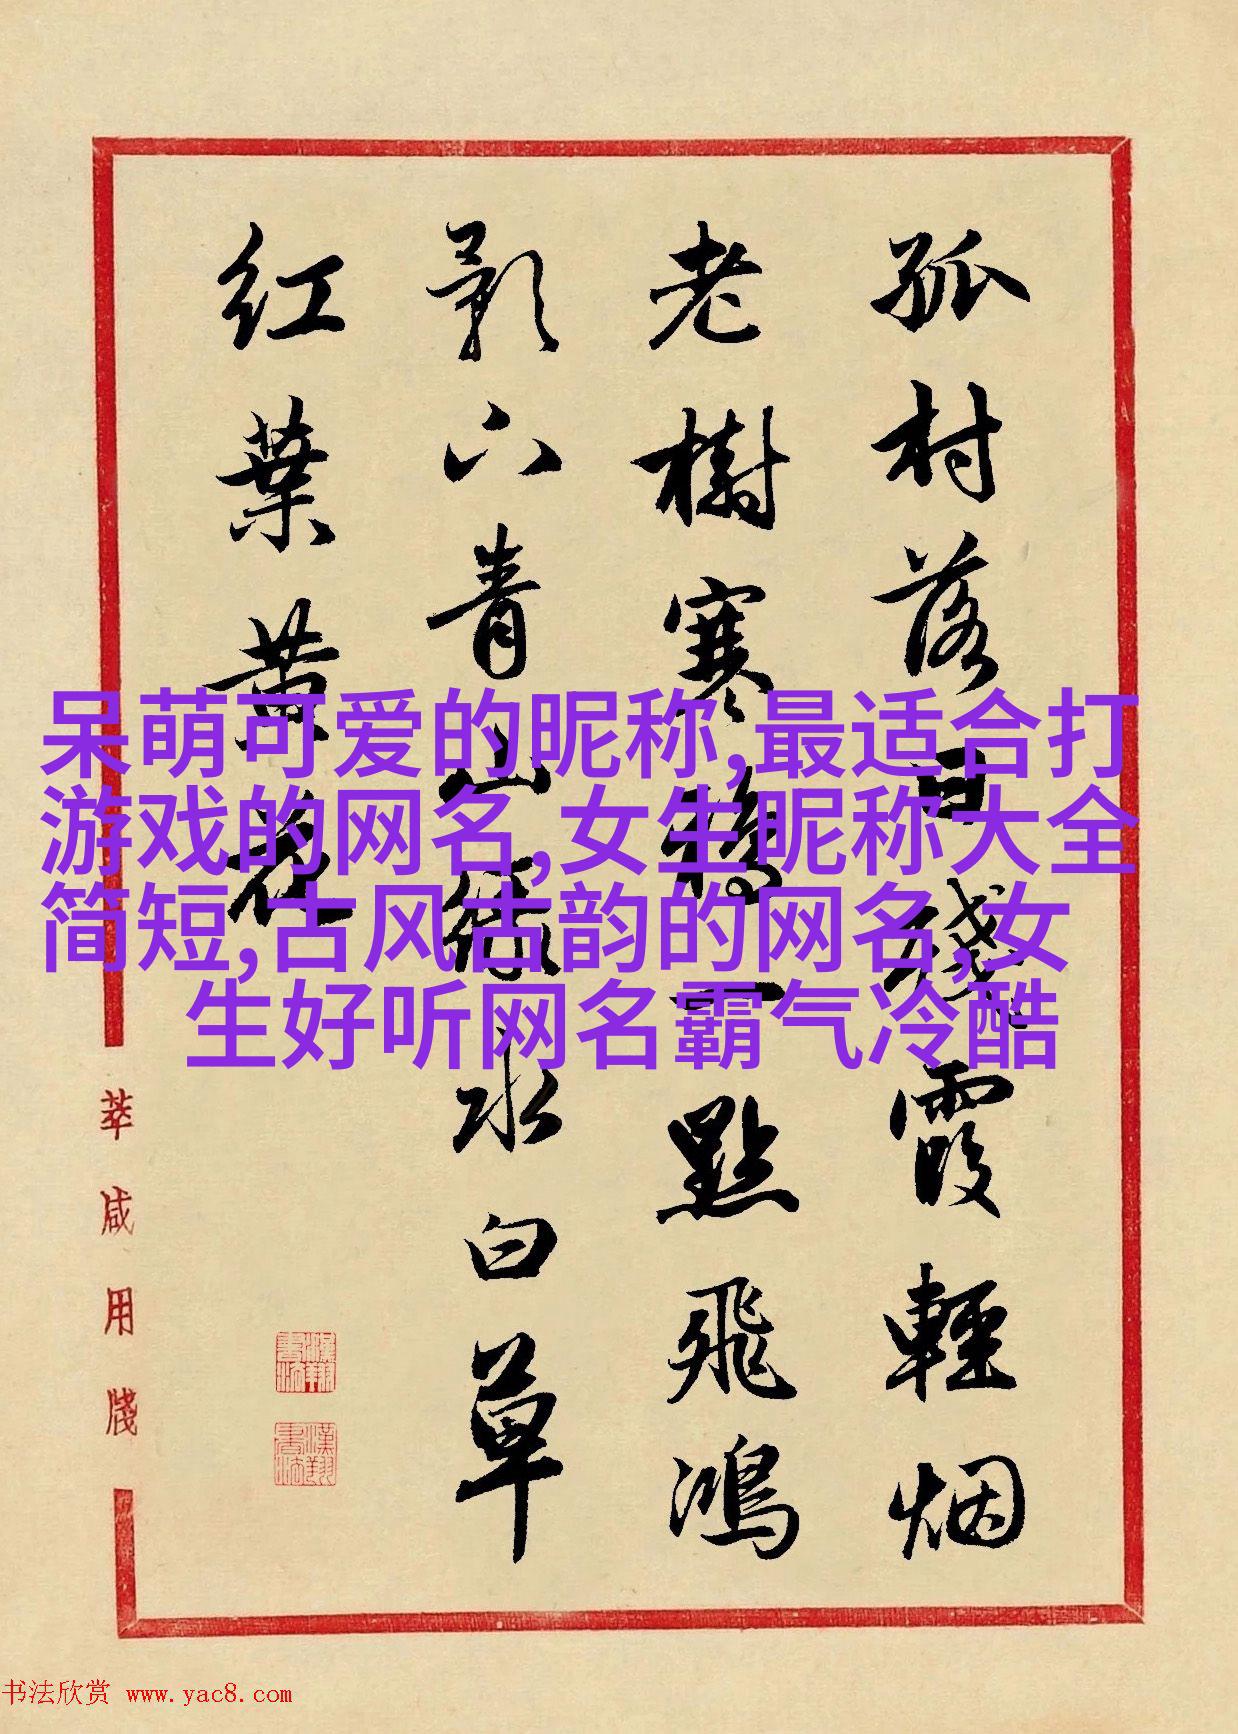 孤村落日殘霞輕烟
老樹寒鴉一點飛鴻
影下青山綠水白草
紅葉黃花
呆萌可爱的昵称,最适合打
游戏的网名,女生昵称大全
简短,古风古韵的网名,女
生好听网名霸气冷酷
萃咸用牋
书法欣赏 www.yac8.com